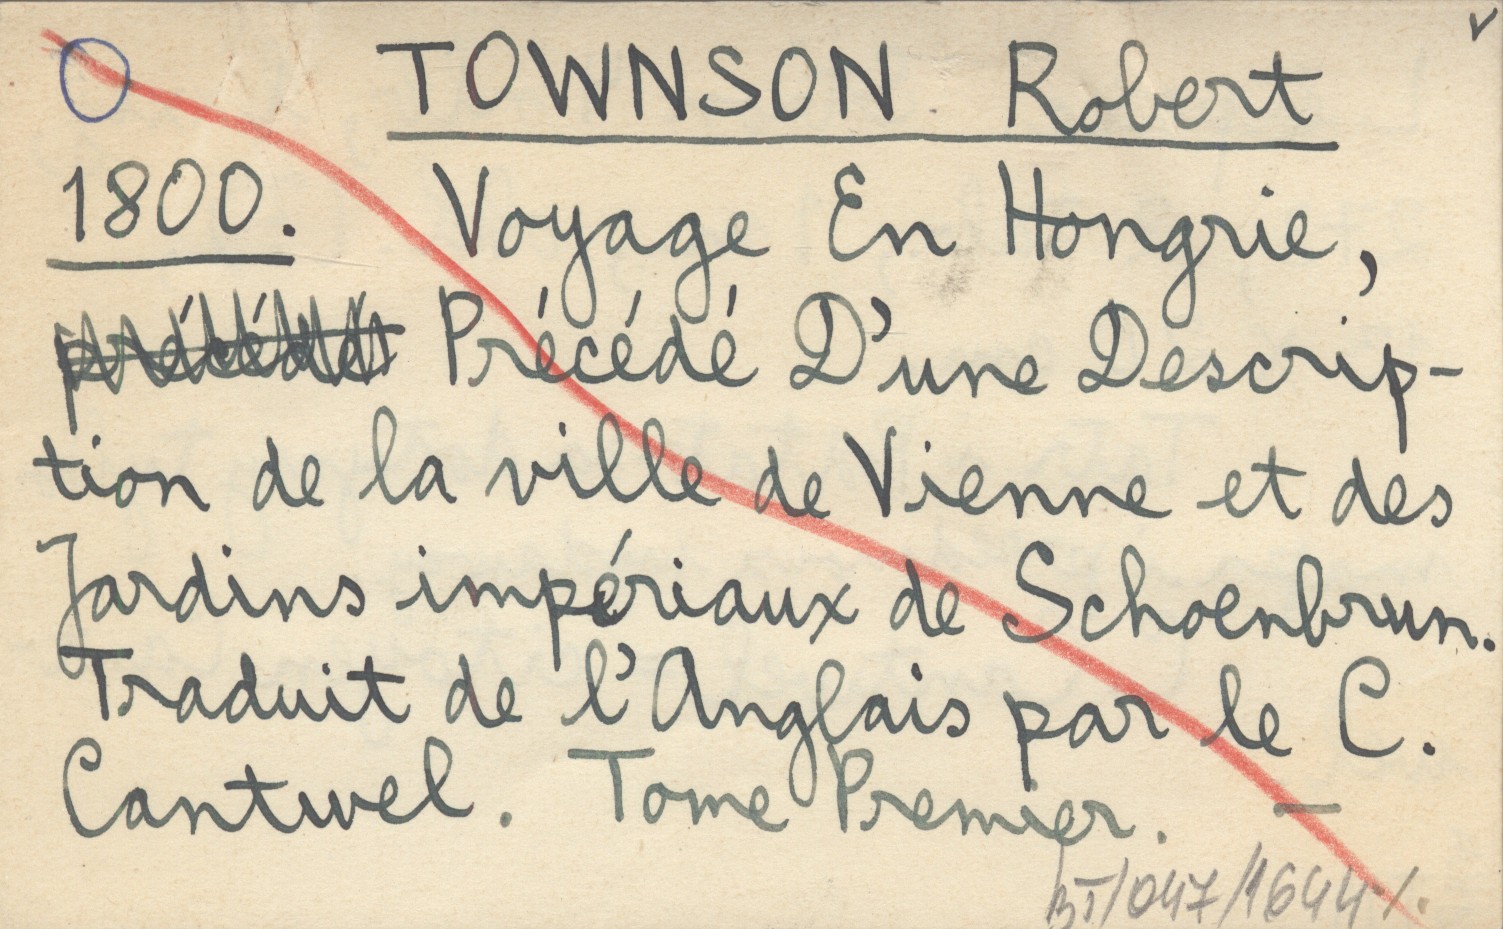 TOWNSON Robert
1800. Voyage En Hongrie,
précédé Précédé D'une Descrip-
tion de la ville de Vienne et des
Jardins impériaux de Schoenbrun.
Traduit de l'Anglais par le C.
Cantwel. Tome Premier. —